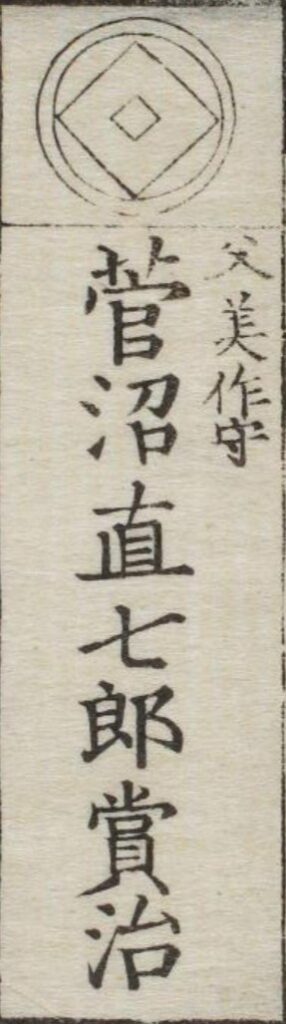 父美作守
菅沼直七郎賞治